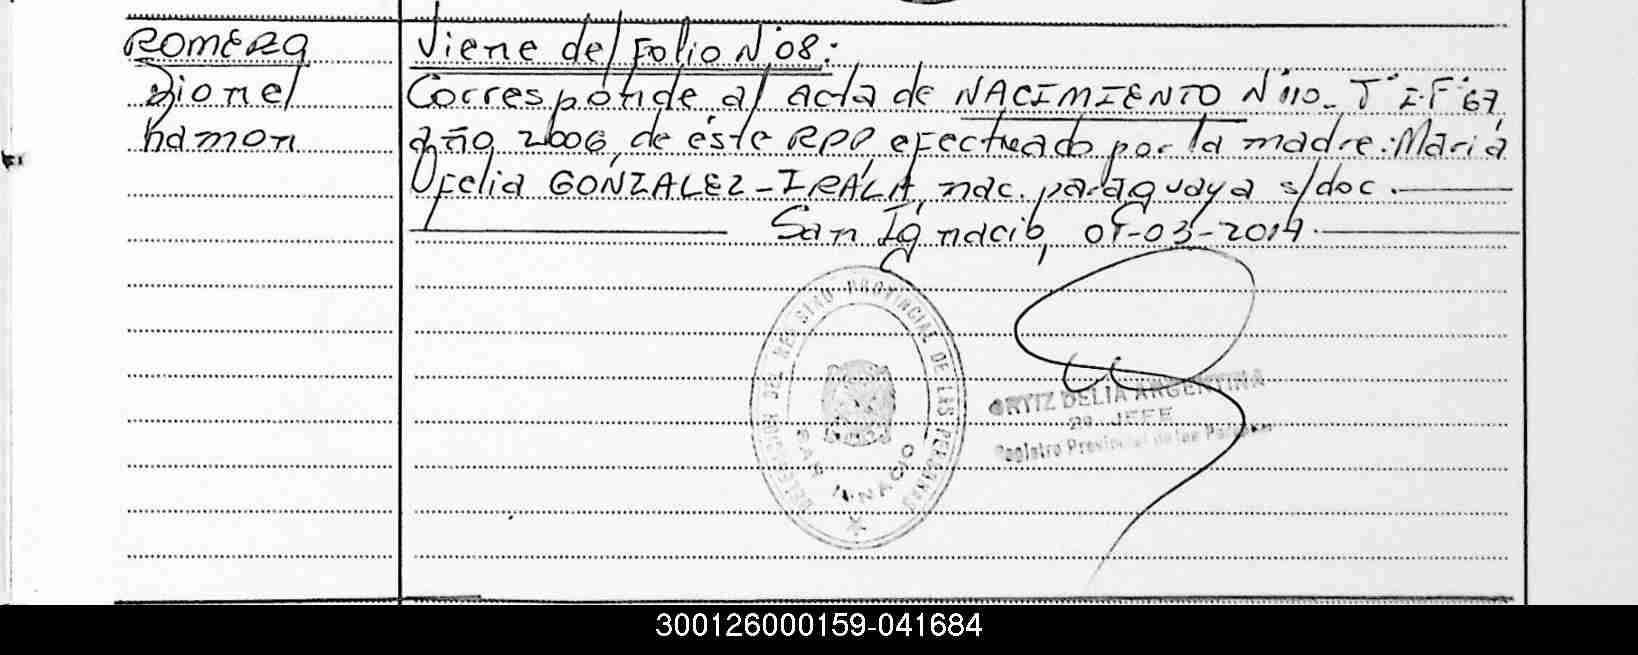 ROMERO
Dionel
Ramon
Viene del Folio N° 08:
Corresponde al acta de NACIMIENTO N° 110_ T° I-F° 67,
año 2006, de éste RPP, efectuado por la madre: Maria
Ofelia GONZALEZ-IRALA, nac. paraguaya s/doc.
San Ignacio, 01-03-2014.
DELEGACION DEL REGISTRO PROVINCIAL DE LAS PERSONAS
SAN IGNACIO
ORTIZ DELIA ARGENTINA
JEFE
Registro Provincial de las Personas
300126000159-041684